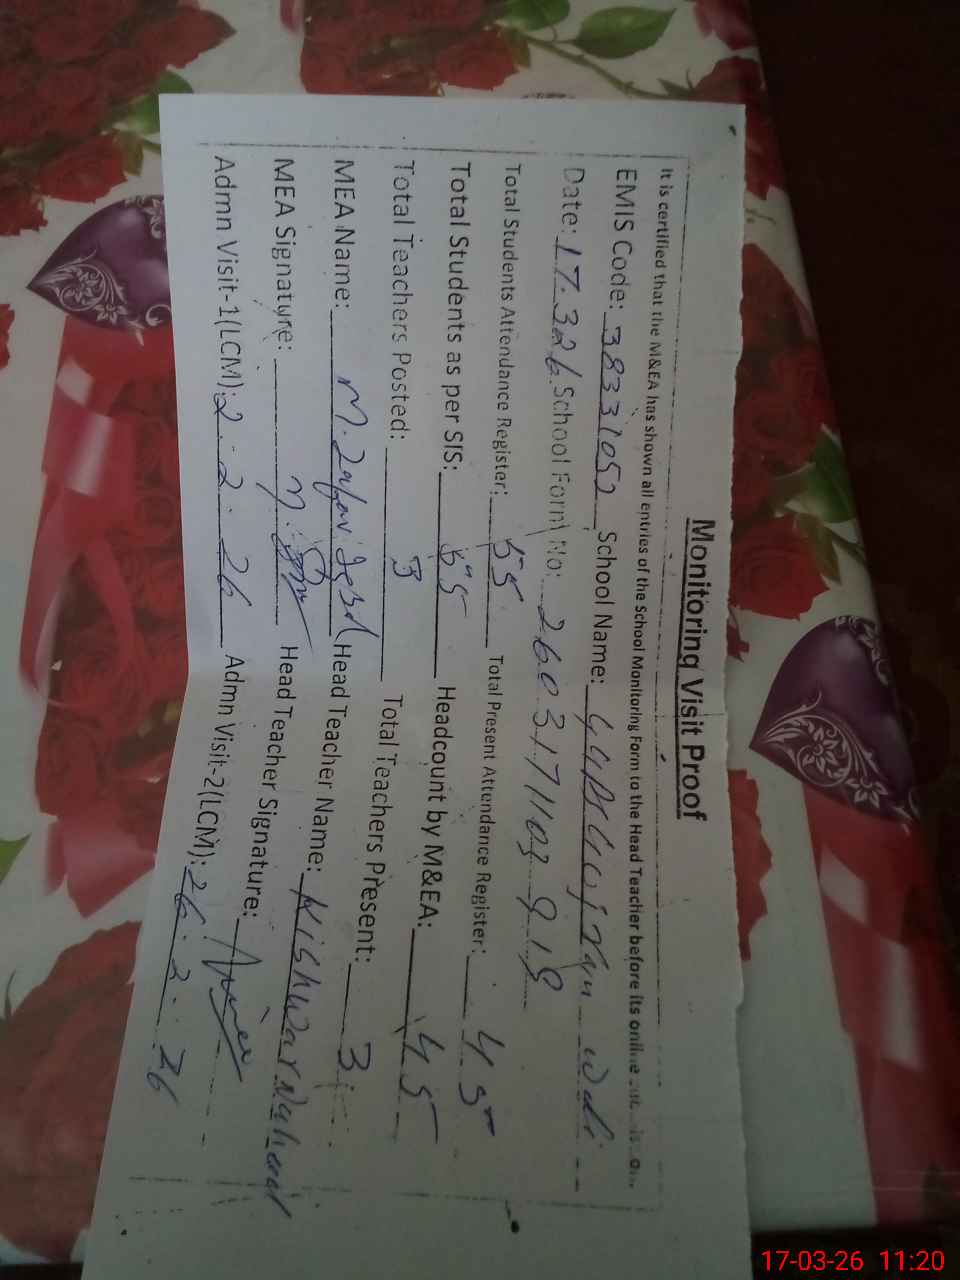 Monitoring Visit Proof
It is certified that the M&EA has shown all entries of the School Monitoring Form to the Head Teacher before its online
EMIS Code: 38331052 School Name:
Date: 17.3.26 School Form No: 2603171103919
Total Students Attendance Register: 55 Total Present Attendance Register: 45
Total Students as per SIS: 55 Headcount by M&EA: 45
Total Teachers Posted: 3 Total Teachers Present: 3
MEA Name: M. Zafar Iqbal Head Teacher Name: Kishwar Naheed
MEA Signature: Head Teacher Signature:
Admn Visit-1(LCM): 2.2.26 Admn Visit-2(LCM): 26.2.26
17-03-26 11:20